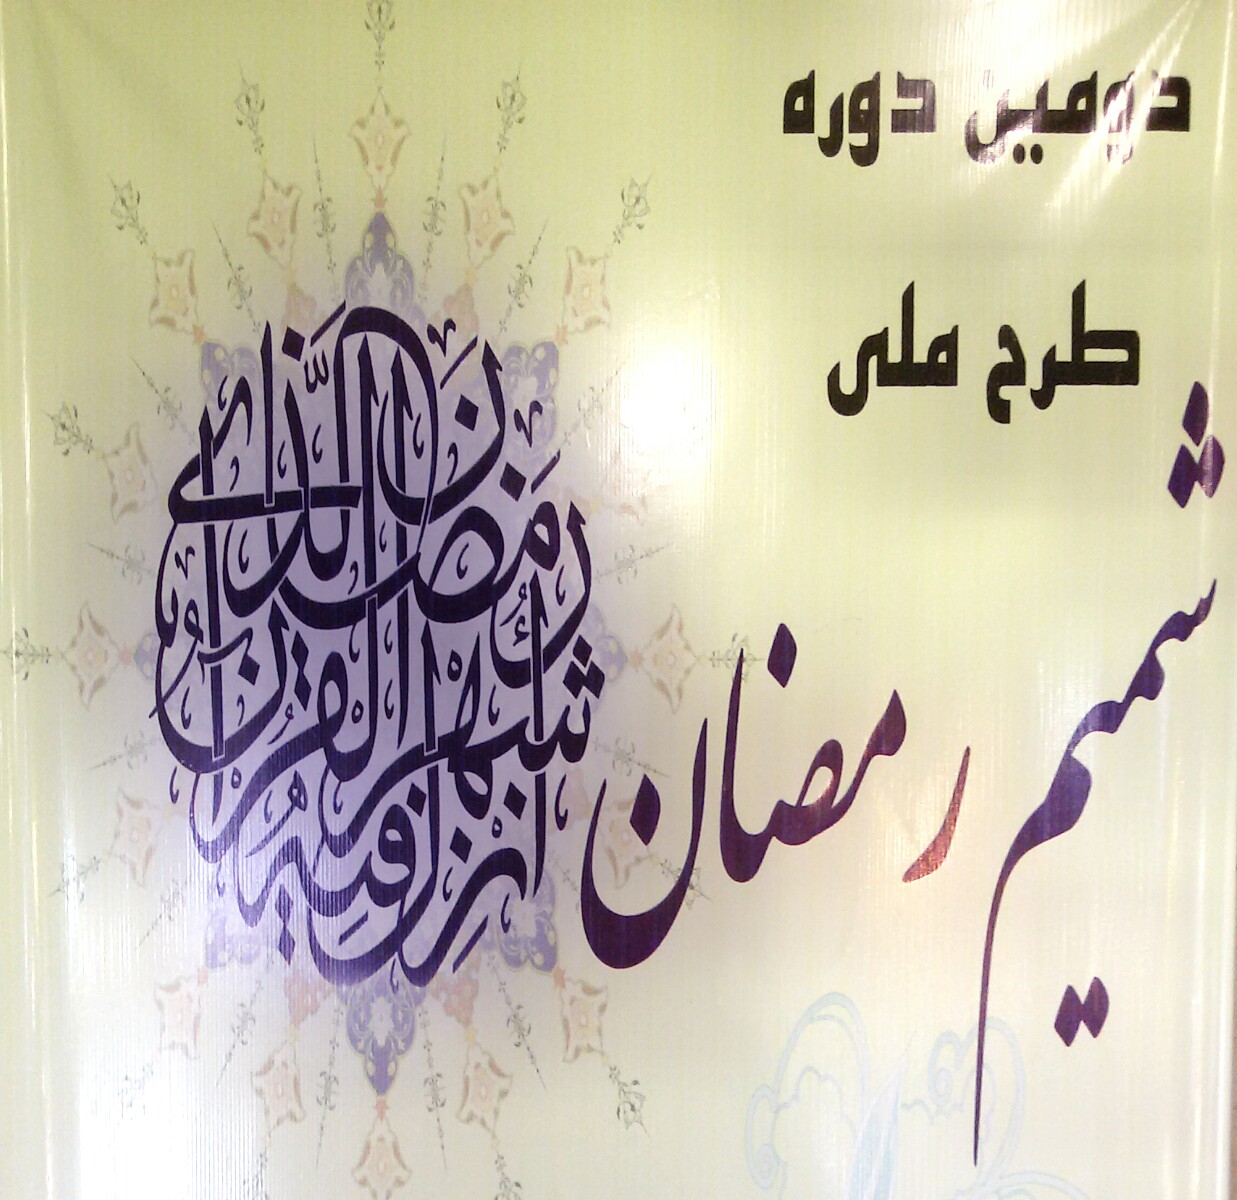 دومین دوره
طرح ملی
شمیم رمضان
شَهرُ رَمَضَانَ الَّذي أُنزِلَ فيهِ القُرآن